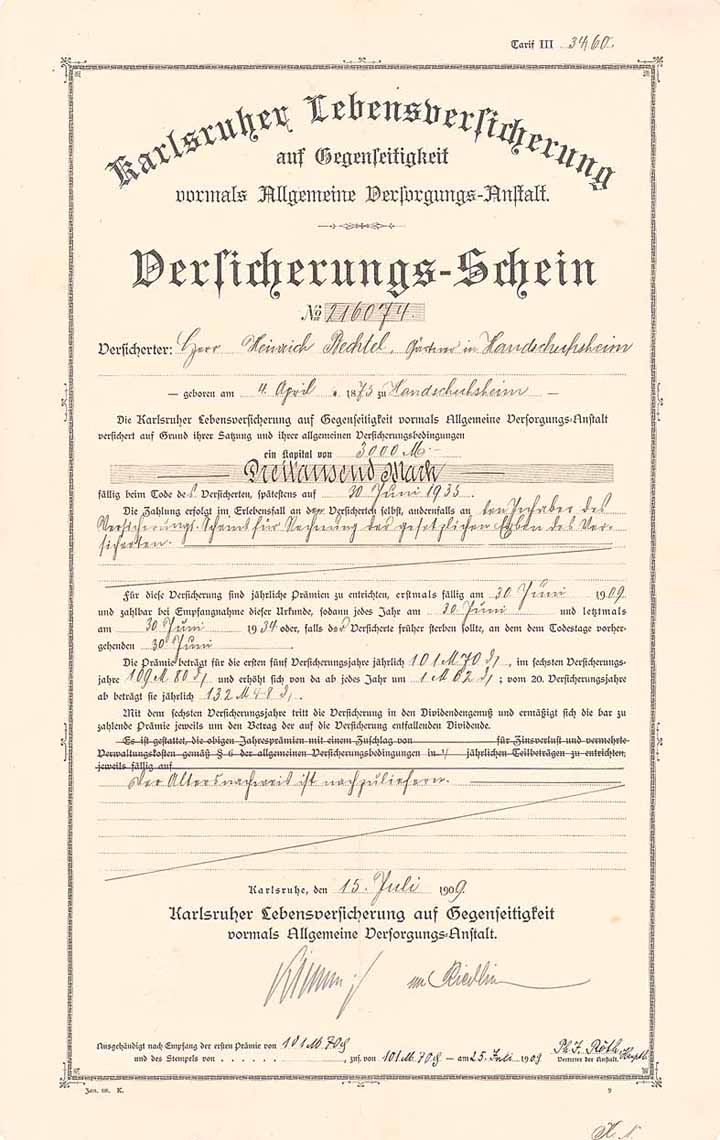 Tarif III 34/60.
Karlsruher Lebensversicherung
auf Gegenseitigkeit
vormals Allgemeine Versorgungs-Anstalt.
Versicherungs-Schein
No 216074.
Versicherter: Herr Heinrich Bechtel, Gärtner in Handschuhsheim
— geboren am 4. April 1875 zu Handschuhsheim —
Die Karlsruher Lebensversicherung auf Gegenseitigkeit vormals Allgemeine Versorgungs-Anstalt
versichert auf Grund ihrer Satzung und ihrer allgemeinen Versicherungsbedingungen
ein Kapital von 3000 M.-
Dreitausend Mark
fällig beim Tode des Versicherten, spätestens auf 30. Juni 1935.
Die Zahlung erfolgt im Erlebensfall an den Versicherten selbst, andernfalls an den Inhaber des
Versicherungs-Scheins für Rechnung der gesetzlichen Erben des Ver-
sicherten.
Für diese Versicherung sind jährliche Prämien zu entrichten, erstmals fällig am 30. Juni 1909
und zahlbar bei Empfangnahme dieser Urkunde, sodann jedes Jahr am 30. Juni und letztmals
am 30. Juni 1934 oder, falls der Versicherte früher sterben sollte, an dem dem Todestage vorher-
gehenden 30. Juni
Die Prämie beträgt für die ersten fünf Versicherungsjahre jährlich 101 M 70 ₰, im sechsten Versicherungs-
jahre 109 M 80 ₰ und erhöht sich von da ab jedes Jahr um 1 M 62 ₰; vom 20. Versicherungsjahre
ab beträgt sie jährlich 132 M 48 ₰.
Mit dem sechsten Versicherungsjahre tritt die Versicherung in den Dividendengenuß und ermäßigt sich die bar zu
zahlende Prämie jeweils um den Betrag der auf die Versicherung entfallenden Dividende.
Es ist gestattet, die obigen Jahresprämien mit einem Zuschlag von für Zinsverlust und vermehrte
Verwaltungskosten gemäß § 6 der allgemeinen Versicherungsbedingungen in jährlichen Teilbeträgen zu entrichten,
jeweils fällig auf
Der Altersnachweis ist nachzuliefern.
Karlsruhe, den 15. Juli 1909.
Karlsruher Lebensversicherung auf Gegenseitigkeit
vormals Allgemeine Versorgungs-Anstalt.
Riedlin
Ausgehändigt nach Empfang der ersten Prämie von 101 M 70 ₰
und des Stempels von . . . . . . . , zus. von 101 M 70 ₰ — am 25. Juli 1909
Ph. J. Röth,
Vertreter der Anstalt.
Jan. 08. K. 9